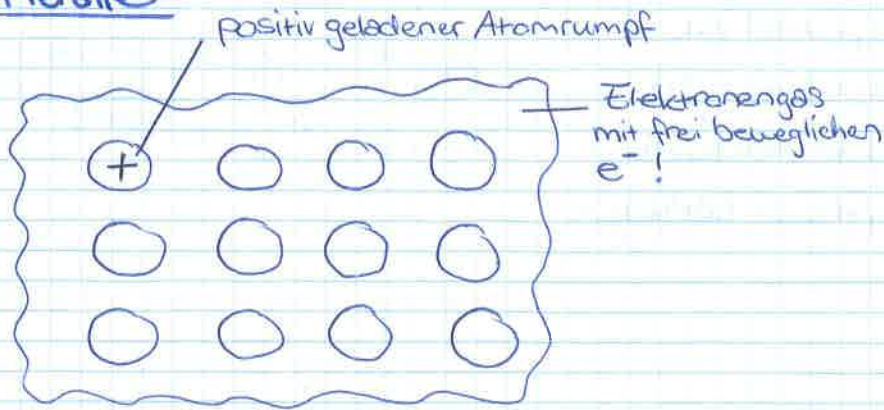 positiv geladener Atomrumpf
Elektronengas
mit frei beweglichen
e⁻ !
+